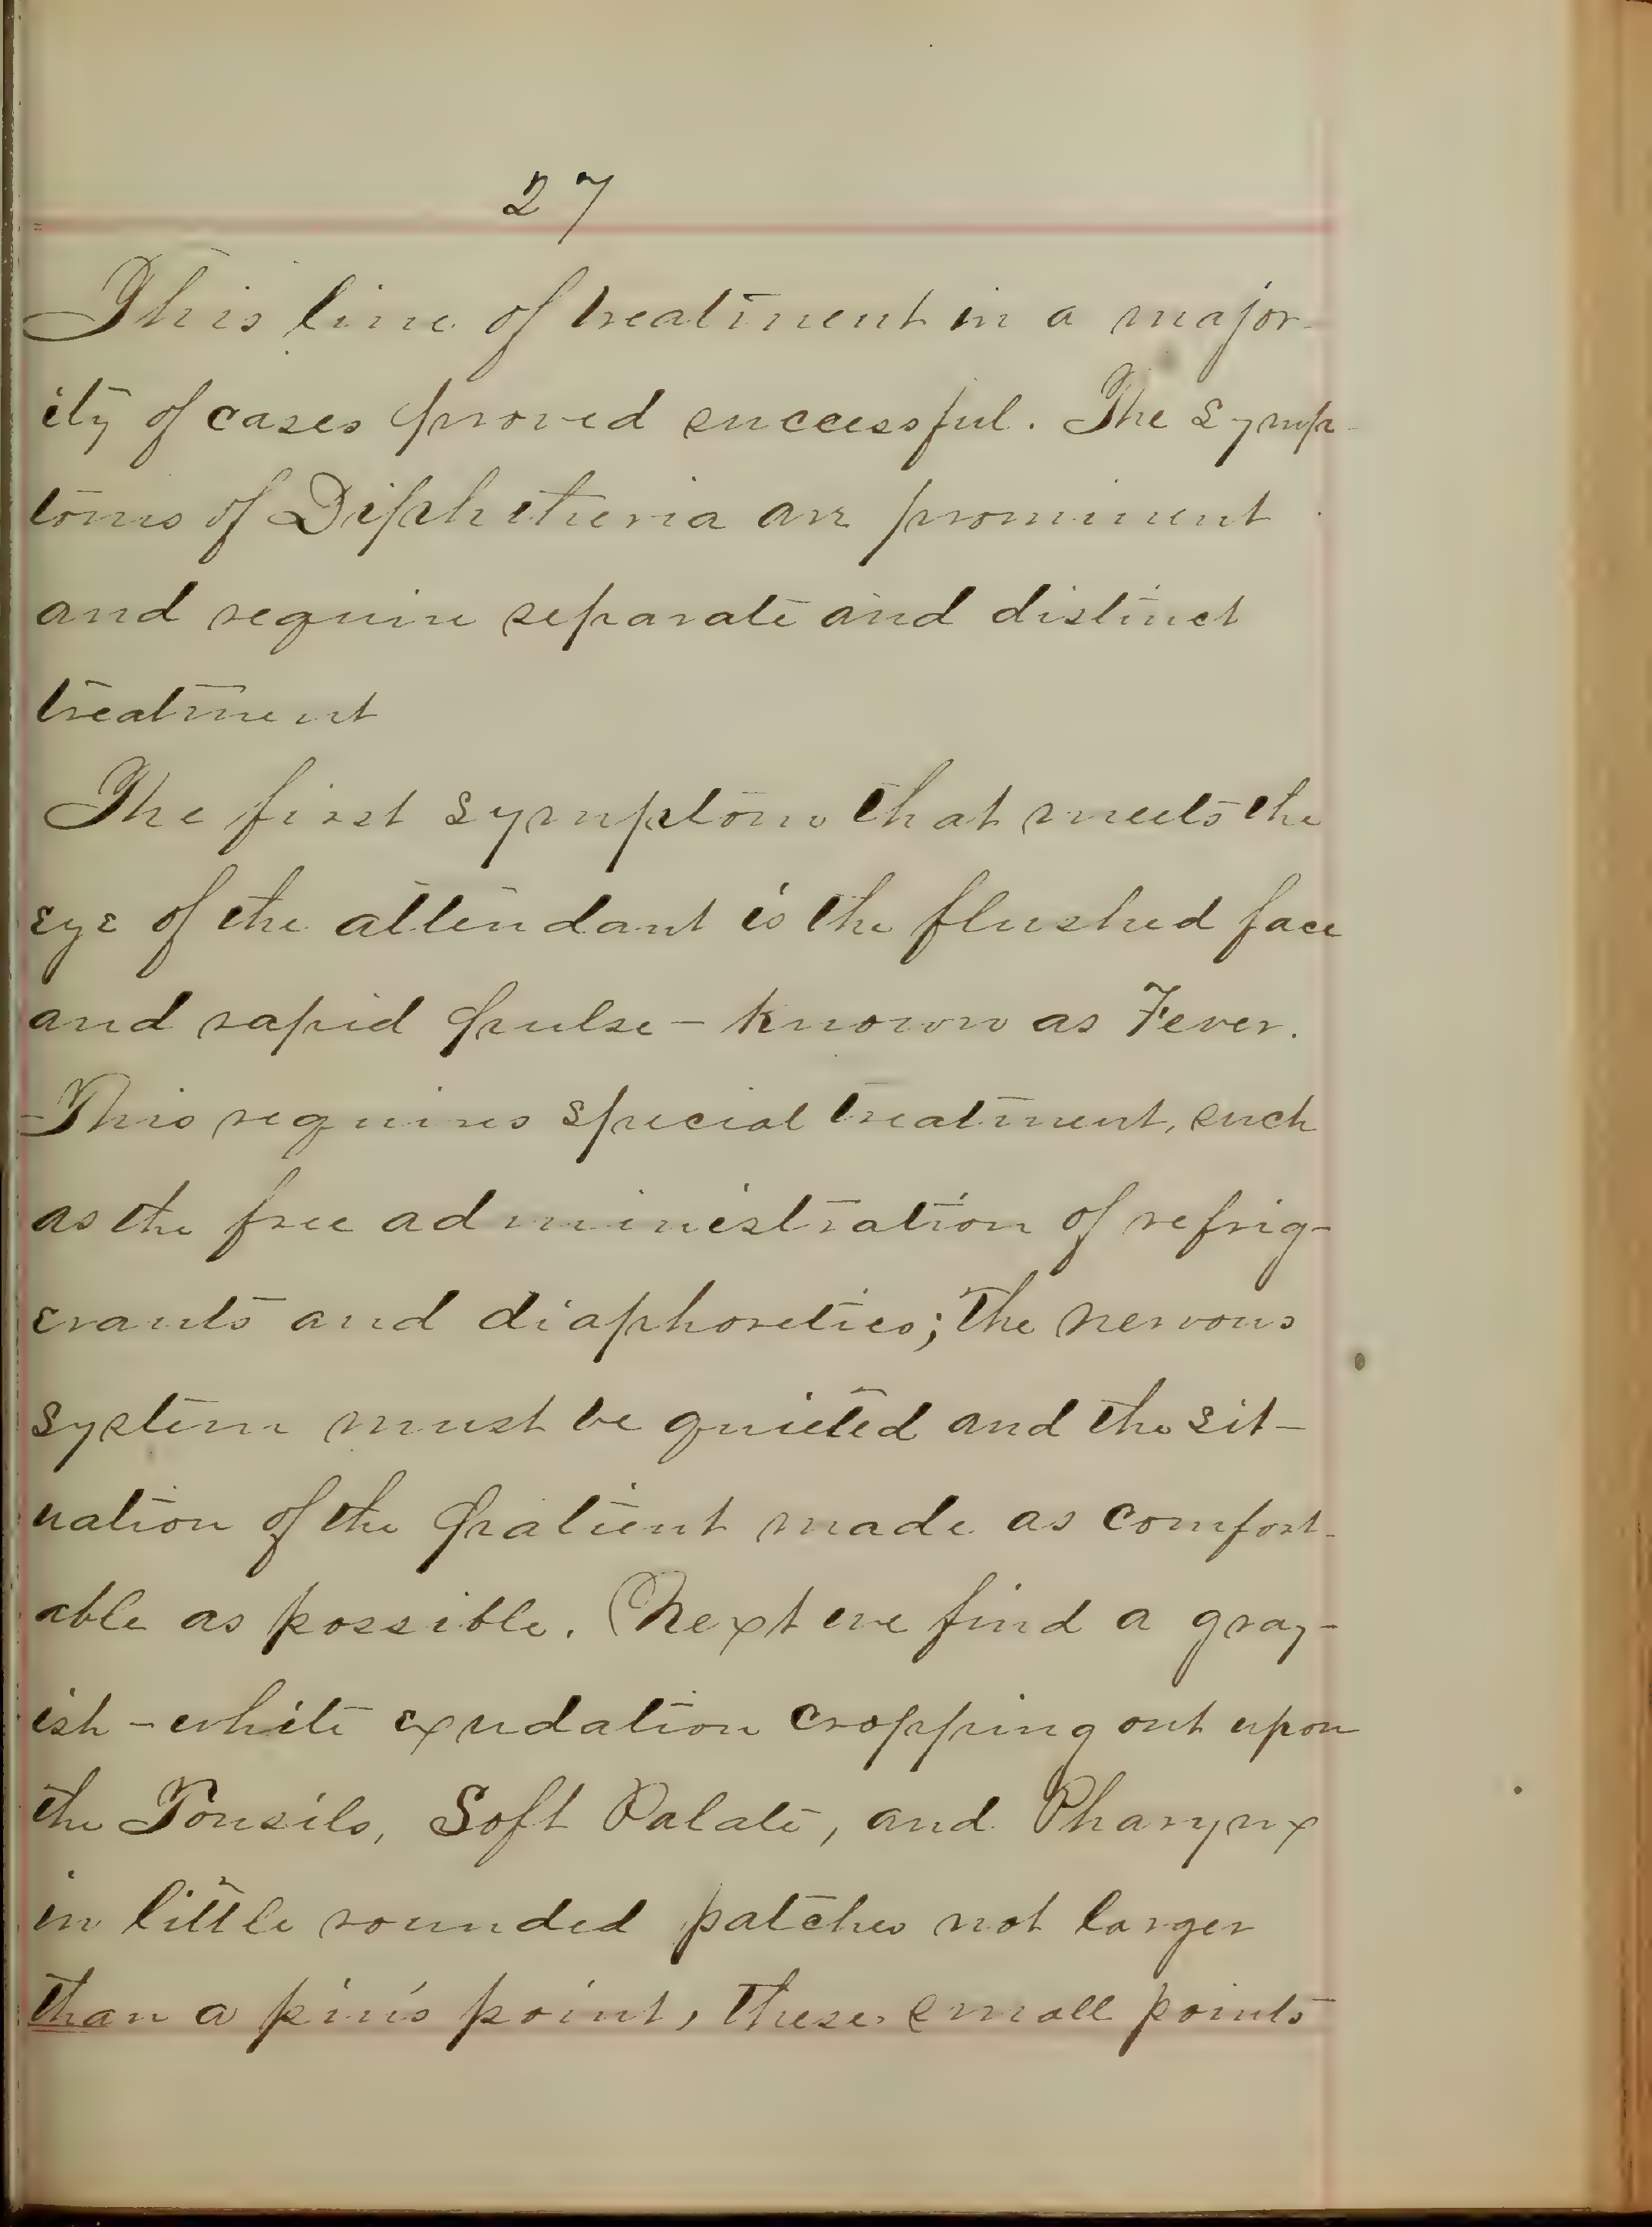 27
This line of treatment in a major-
ity of cases proved successful. The symp-
toms of Diphtheria are prominent
and require separate and distinct
treatment
The first symptom that meets the
eye of the attendant is the flushed face
and rapid pulse - known as Fever.
This requires special treatment, such
as the free administration of refrig-
erants and diaphoretics; the nervous
system must be quieted and the sit-
uation of the patient made as comfort-
able as possible. Next we find a gray-
ish - white exudation cropping out upon
the Tonsils, Soft Palate, and Pharynx
in little rounded patches not larger
than a pin's point, these small points